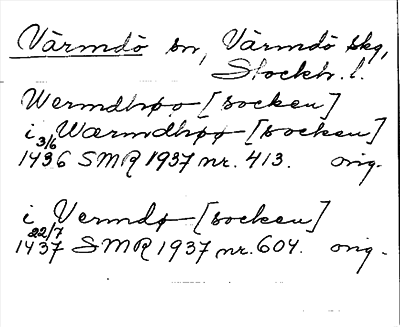 Värmdö sn, Värmdö skg,
Stockh. l.
Wermdhøo [socken]
i Wærmdhøø [socken]
3/6
1436 SMR 1937 nr. 413. orig.
i Vermdø [socken]
22/7
1437 SMR 1937 nr. 604. orig.